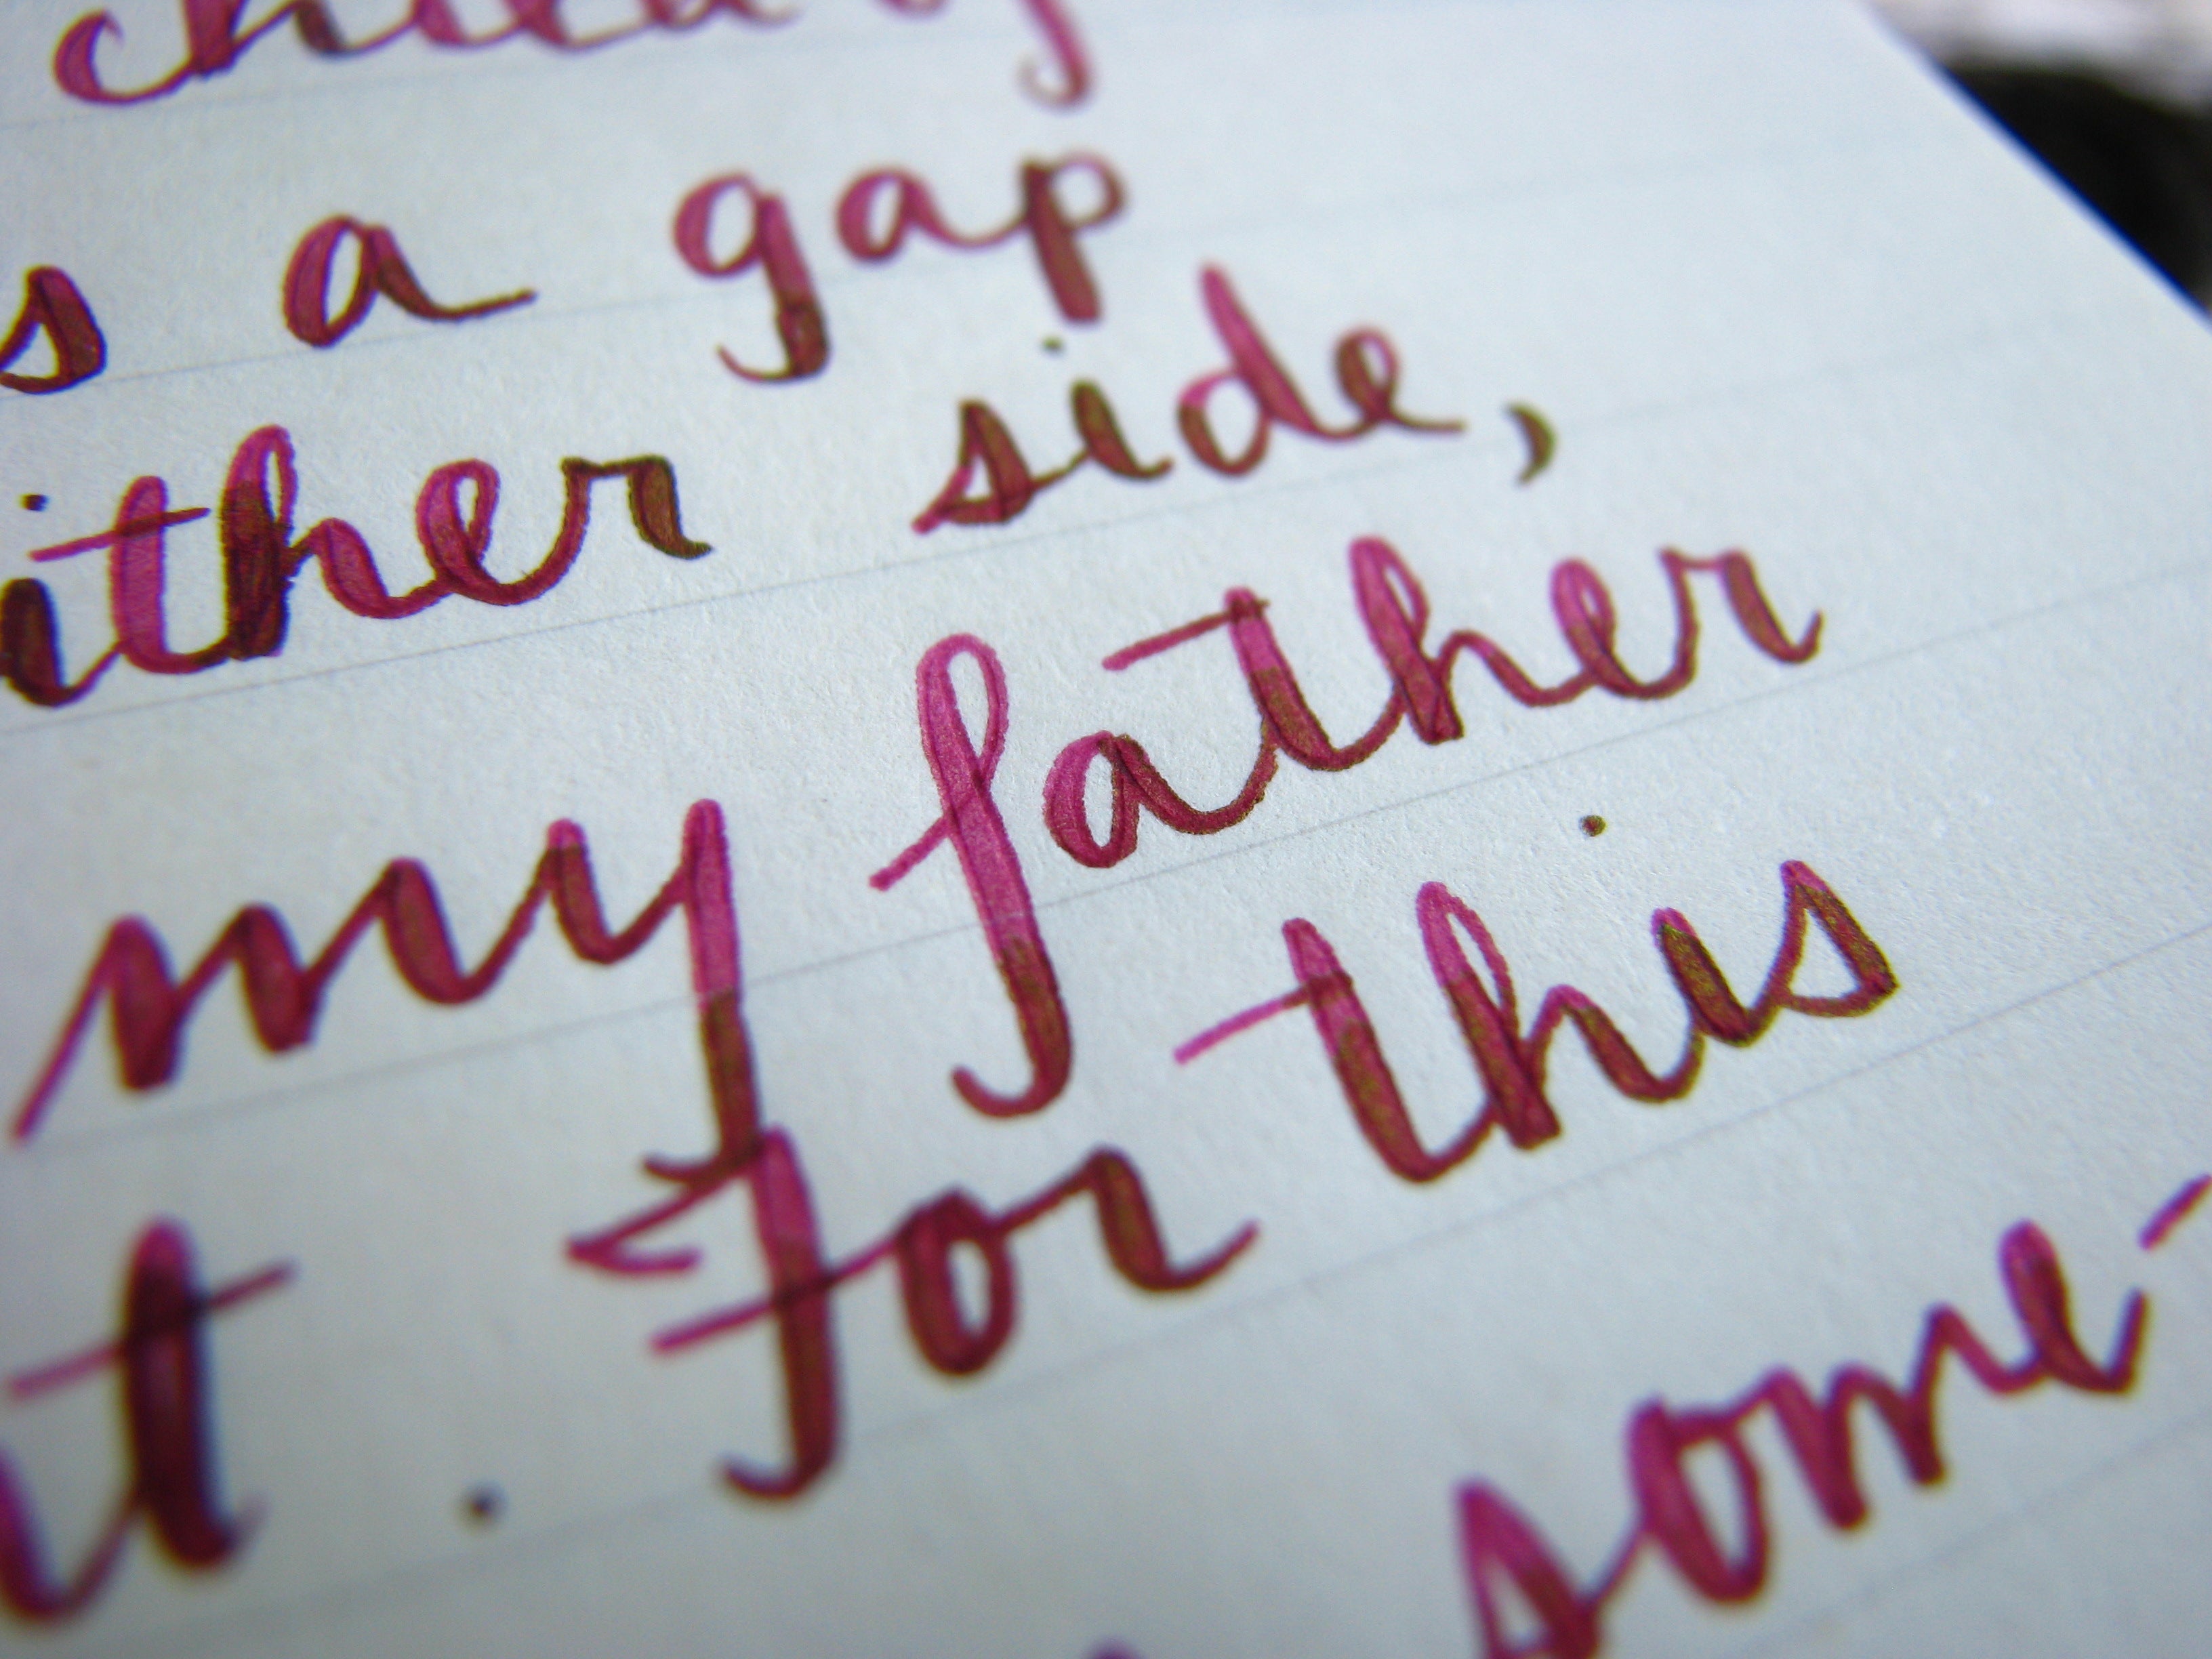 child of
s a gap
ither side,
my father
t. For this
some-